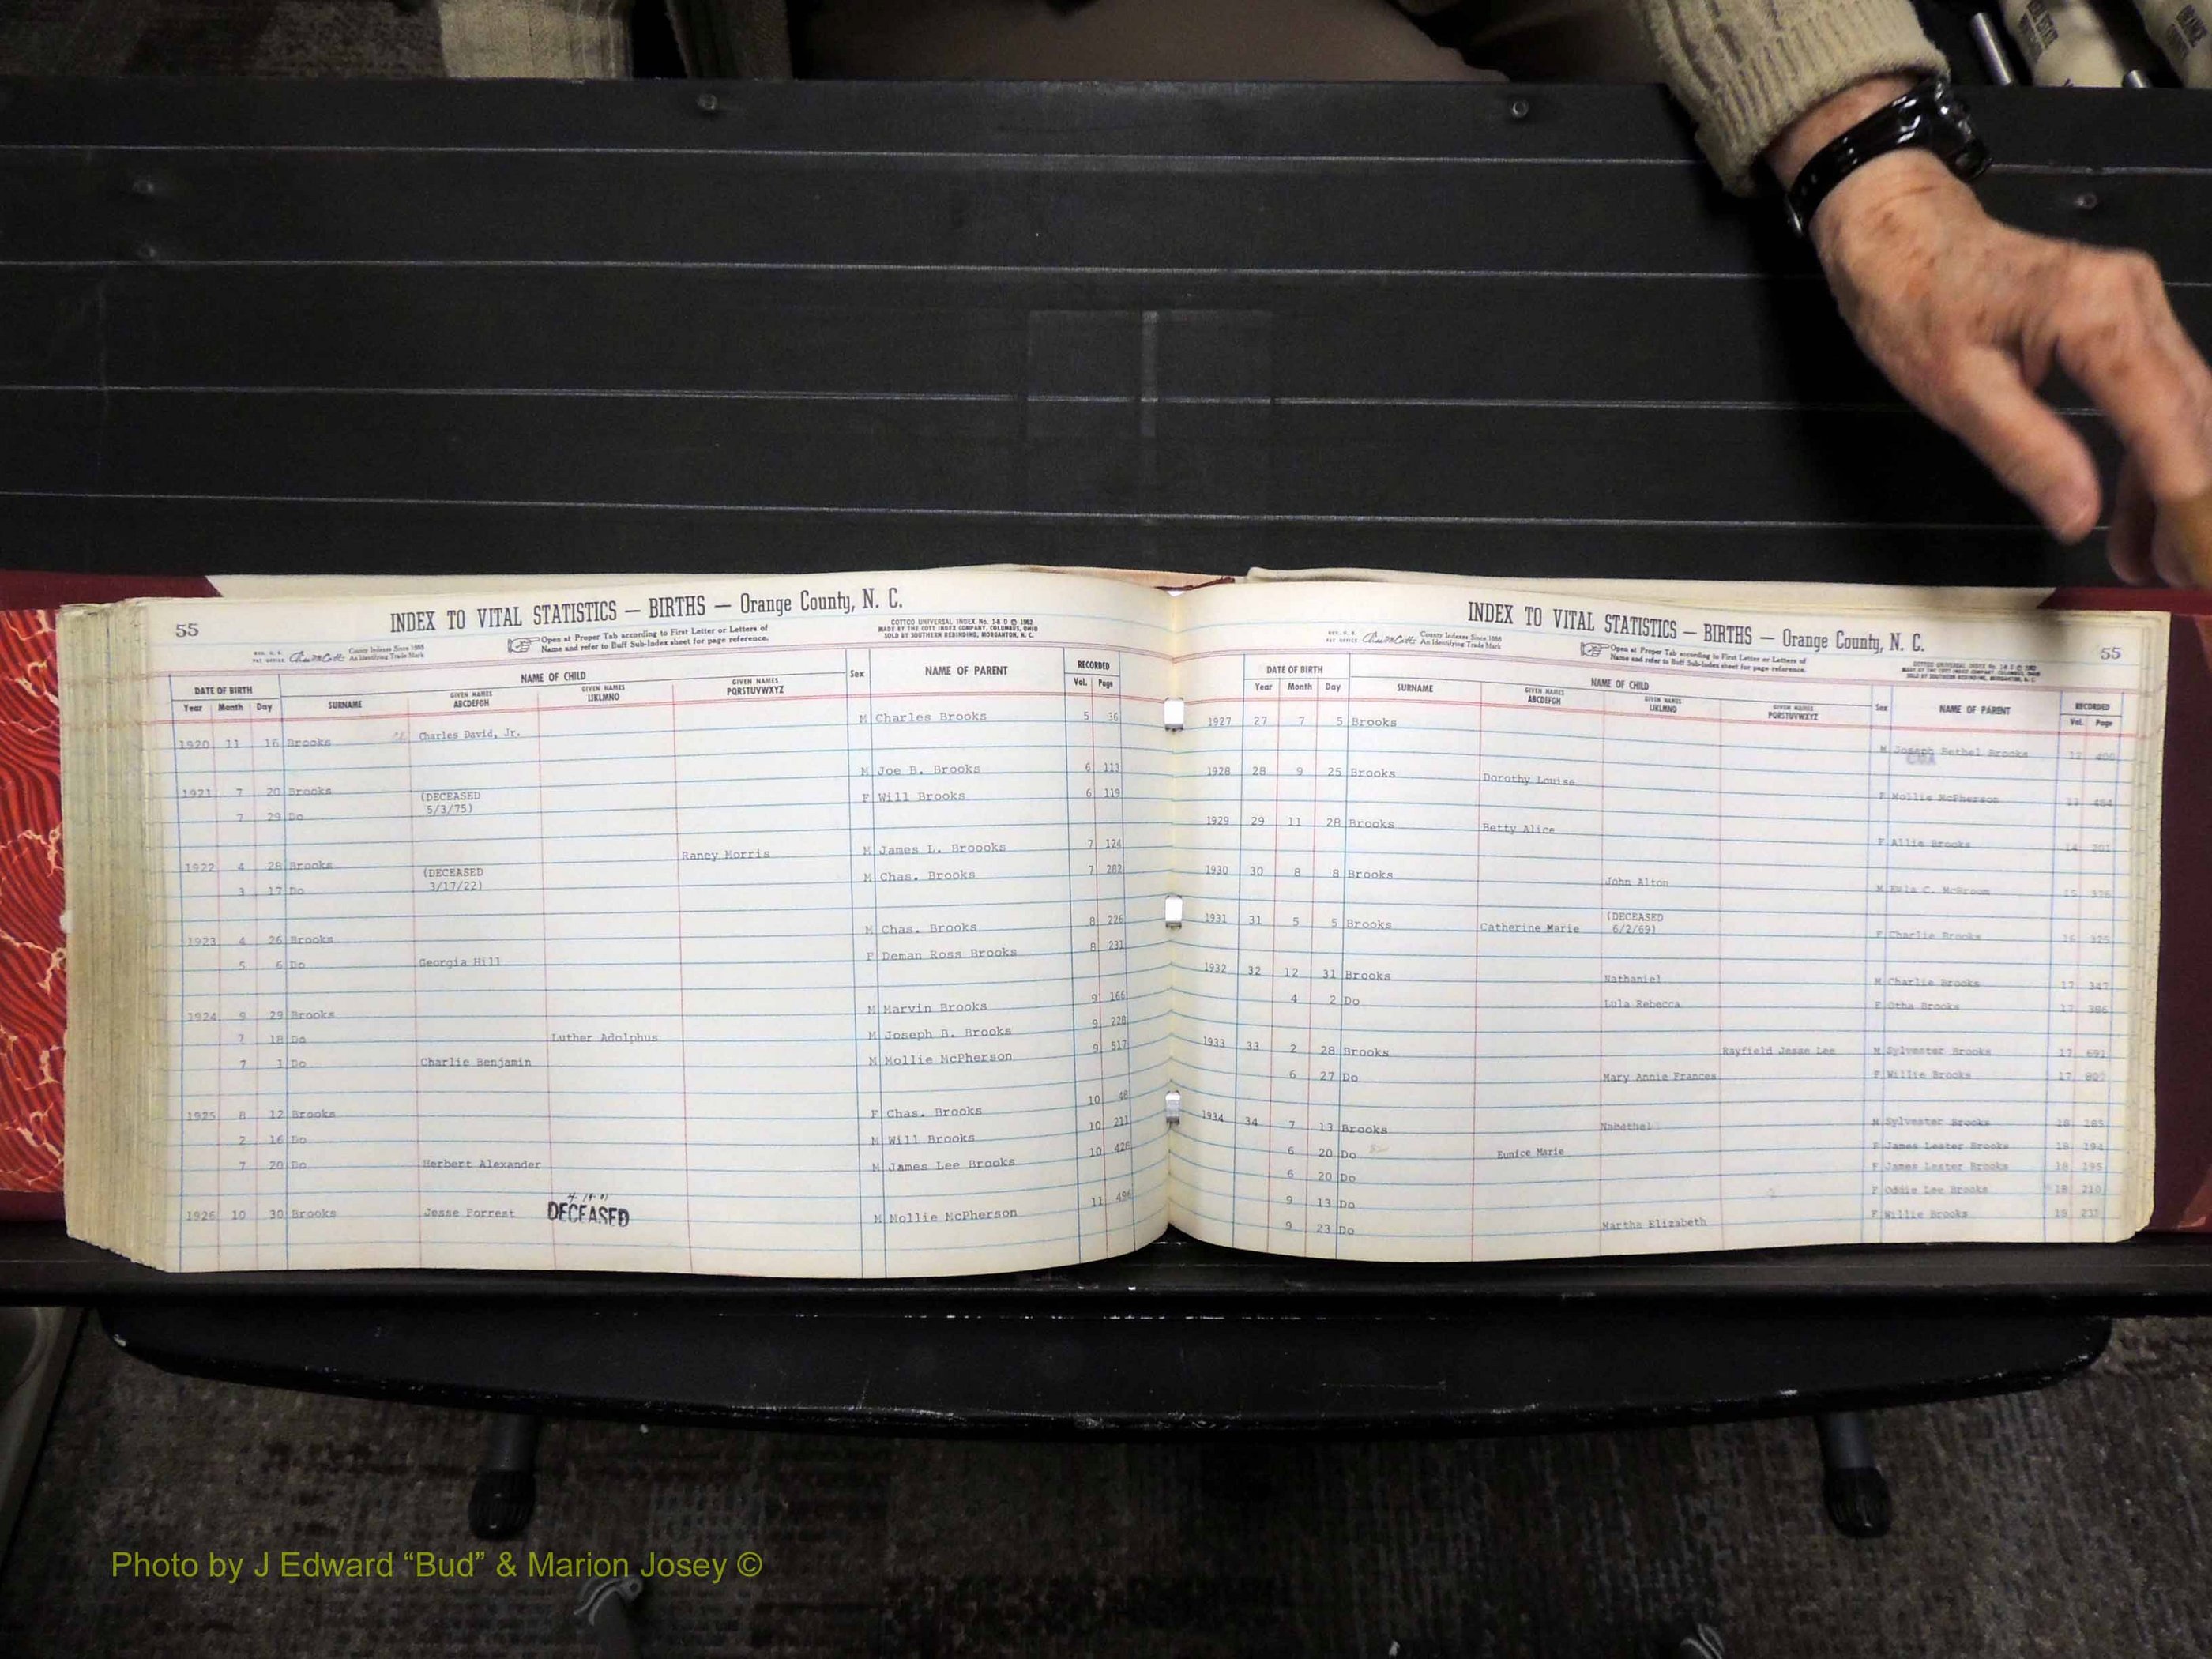 55
INDEX TO VITAL STATISTICS — BIRTHS — Orange County, N. C.
REG. U. S. PAT. OFFICE County Indexes Since 1888 An Identifying Trade Mark
Open at Proper Tab according to First Letter or Letters of
Name and refer to Buff Sub-Index sheet for page reference.
COTTCO UNIVERSAL INDEX No. 14 D © 1962
MADE BY THE COTT INDEX COMPANY, COLUMBUS, OHIO
SOLD BY SOUTHERN REBINDING, MORGANTON, N. C.
DATE OF BIRTH NAME OF CHILD Sex NAME OF PARENT RECORDED
Year Month Day SURNAME GIVEN NAMES ABCDEFGH GIVEN NAMES IJKLMNO GIVEN NAMES PQRSTUVWXYZ Vol. Page
1920 11 16 Brooks Charles David, Jr. M Charles Brooks 5 36
1921 7 20 Brooks (DECEASED 5/3/75) M Joe B. Brooks 6 113
7 29 Do F Will Brooks 6 119
1922 4 28 Brooks Raney Morris M James L. Broooks 7 124
3 17 Do (DECEASED 3/17/22) M Chas. Brooks 7 282
1923 4 26 Brooks M Chas. Brooks 8 226
5 6 Do Georgia Hill F Deman Ross Brooks 8 231
1924 9 29 Brooks M Marvin Brooks 9 166
7 18 Do Luther Adolphus M Joseph B. Brooks 9 228
7 1 Do Charlie Benjamin M Mollie McPherson 9 517
1925 8 12 Brooks F Chas. Brooks 10 48
2 16 Do M Will Brooks 10 211
7 20 Do Herbert Alexander M James Lee Brooks 10 426
1926 10 30 Brooks Jesse Forrest DECEASED M Mollie McPherson 11 496
INDEX TO VITAL STATISTICS — BIRTHS — Orange County, N. C.
55
REG. U. S. PAT. OFFICE County Indexes Since 1888 An Identifying Trade Mark
Open at Proper Tab according to First Letter or Letters of
Name and refer to Buff Sub-Index sheet for page reference.
COTTCO UNIVERSAL INDEX No. 14 D © 1962
MADE BY THE COTT INDEX COMPANY, COLUMBUS, OHIO
SOLD BY SOUTHERN REBINDING, MORGANTON, N. C.
DATE OF BIRTH NAME OF CHILD Sex NAME OF PARENT RECORDED
Year Month Day SURNAME GIVEN NAMES ABCDEFGH GIVEN NAMES IJKLMNO GIVEN NAMES PQRSTUVWXYZ Vol. Page
1927 27 7 5 Brooks M Joseph Bethel Brooks 12 400
1928 28 9 25 Brooks Dorothy Louise F Mollie McPherson 13 484
1929 29 11 28 Brooks Betty Alice F Allie Brooks 14 301
1930 30 8 8 Brooks John Alton M C. McBroom 15
1931 31 5 5 Brooks Catherine Marie (DECEASED 6/2/69) F Charlie Brooks 16 325
1932 32 12 31 Brooks Nathaniel M Charlie Brooks 17 347
4 2 Do Lula Rebecca F Otha Brooks 17 386
1933 33 2 28 Brooks Rayfield Jesse Lee M Sylvester Brooks 17 691
6 27 Do Mary Annie Frances F Willie Brooks 17 807
1934 34 7 13 Brooks Nabethel M Sylvester Brooks 18 185
6 20 Do Eunice Marie F James Lester Brooks 18 194
6 20 Do F James Lester Brooks 18 195
9 13 Do F Oddie Lee Brooks 18 210
9 23 Do Martha Elizabeth F Willie Brooks 18 231
Photo by J Edward “Bud” & Marion Josey ©